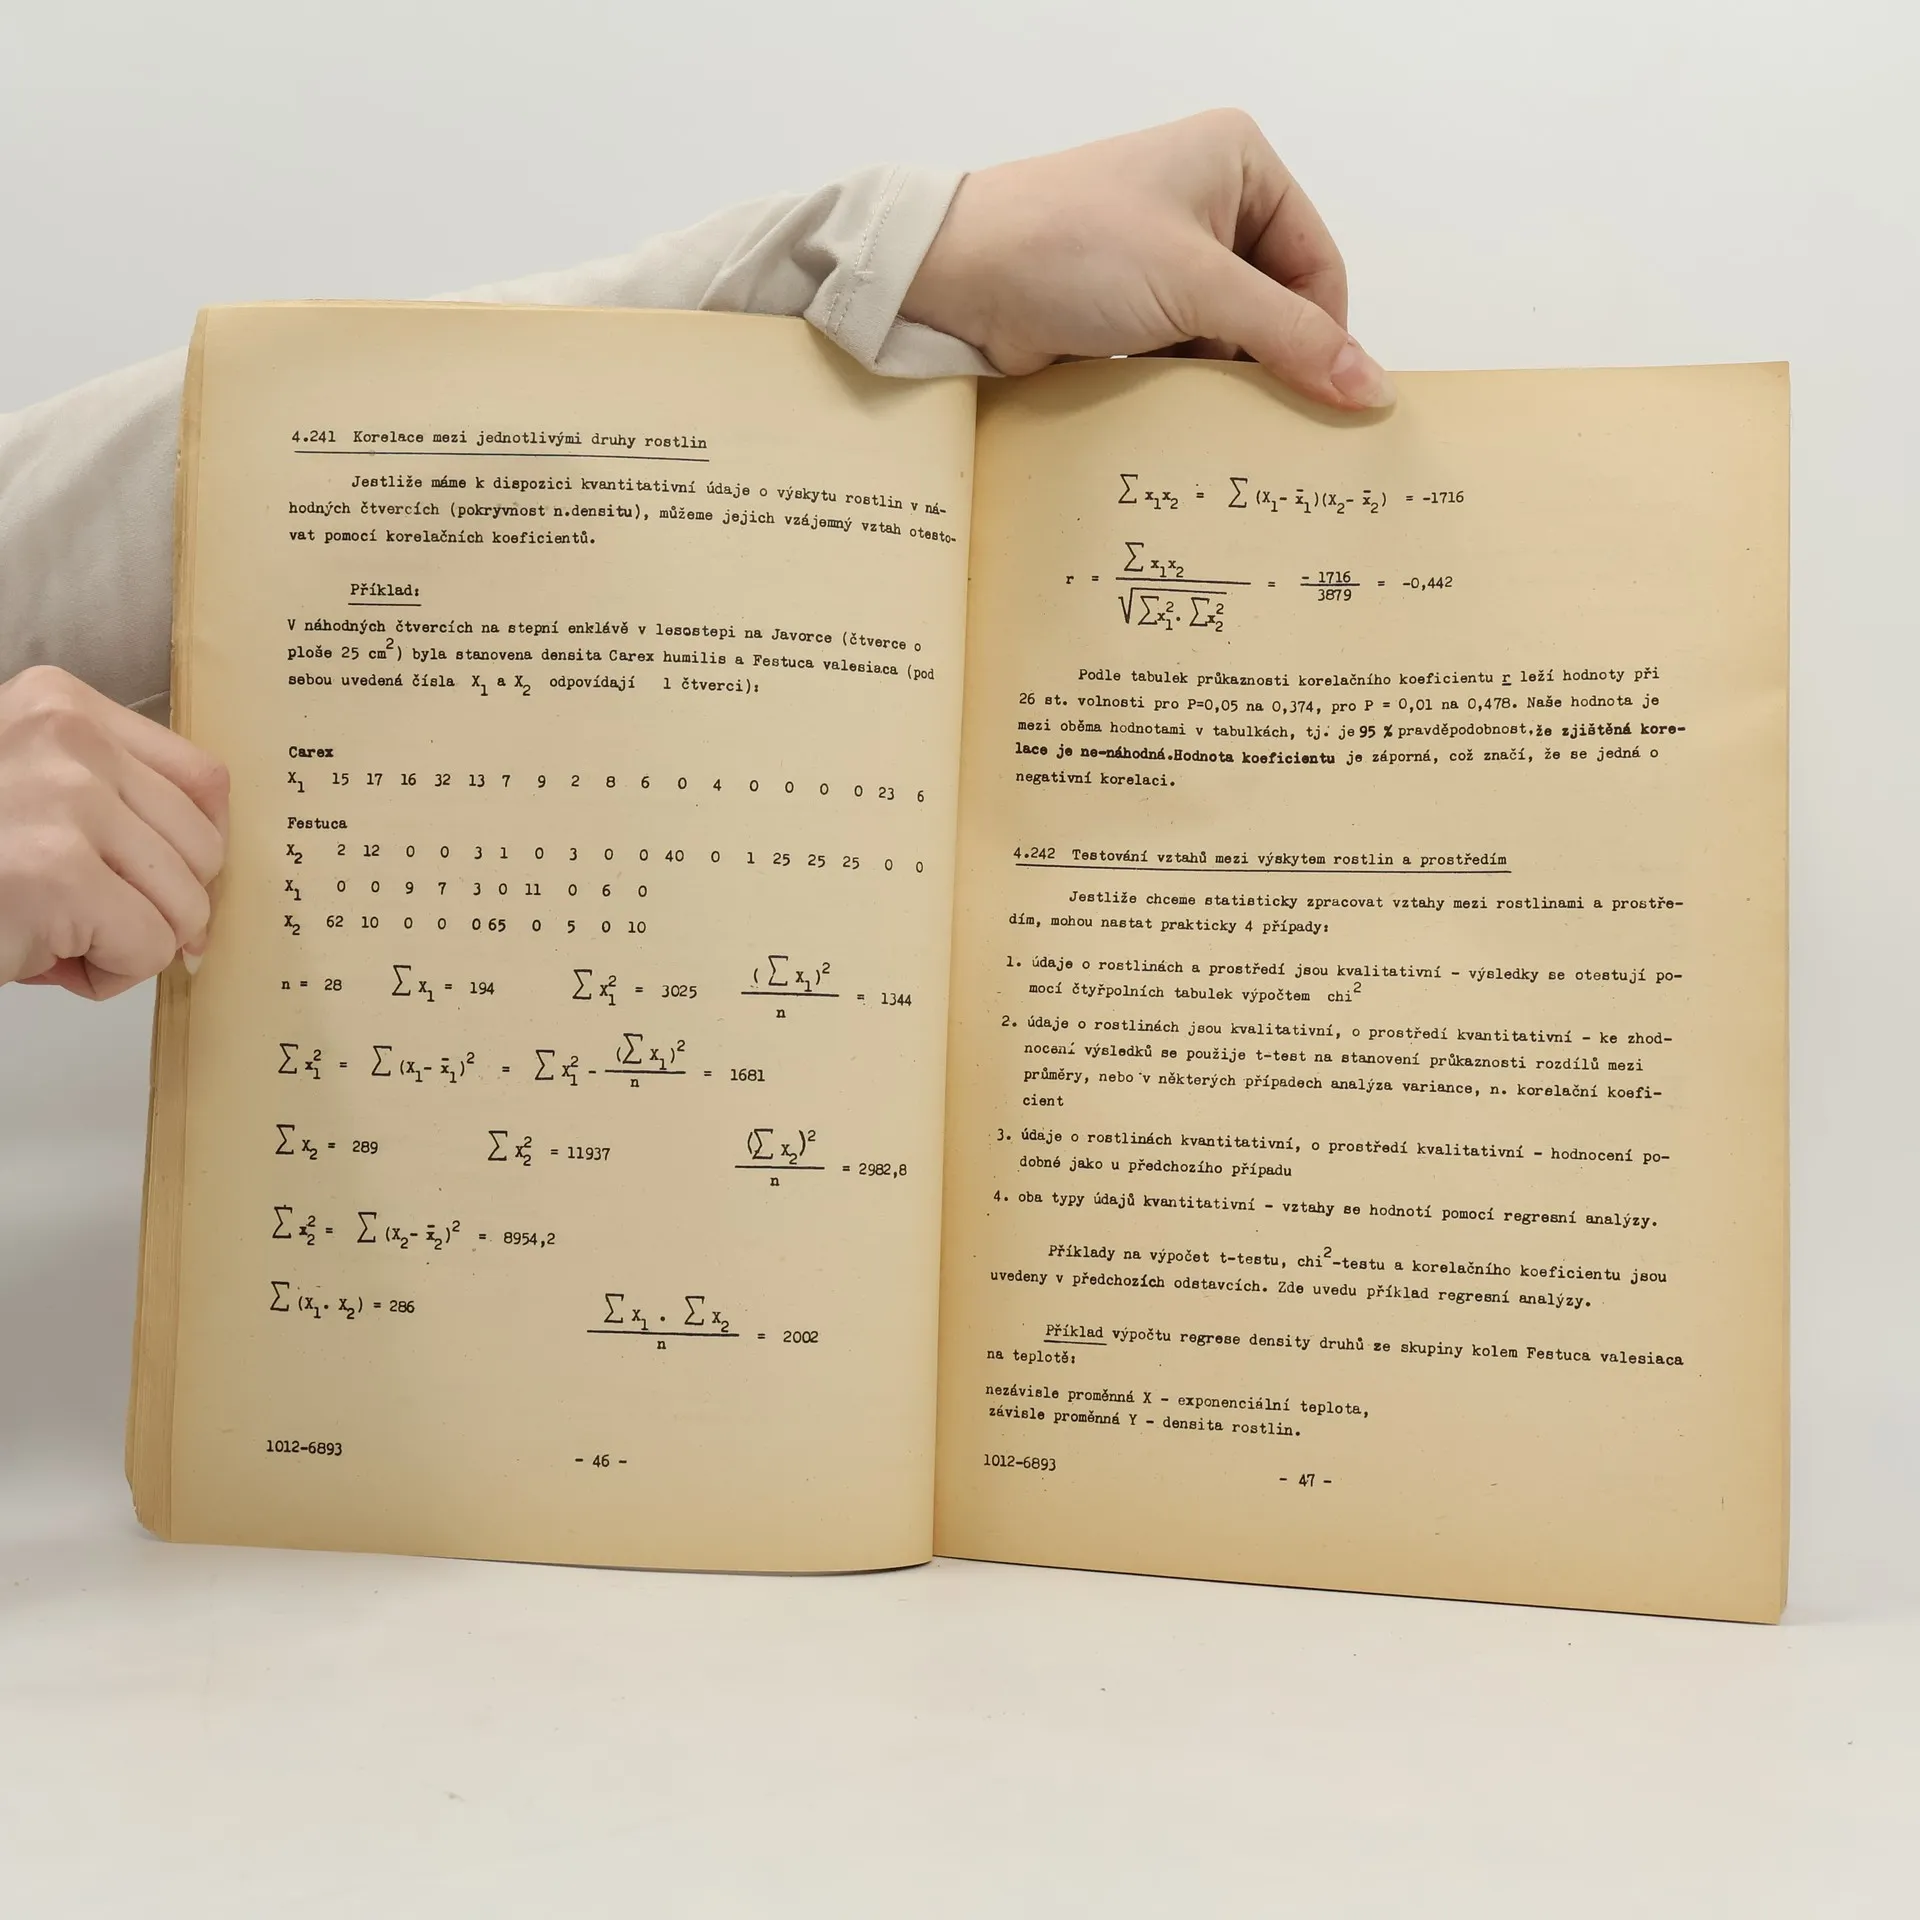 4.241 Korelace mezi jednotlivými druhy rostlin
Jestliže máme k dispozici kvantitativní údaje o výskytu rostlin v ná-
hodných čtvercích (pokryvnost n.densitu), můžeme jejich vzájemný vztah otesto-
vat pomocí korelačních koeficientů.
Příklad:
V náhodných čtvercích na stepní enklávě v lesostepi na Javorce (čtverce o
ploše 25 cm²) byla stanovena densita Carex humilis a Festuca valesiaca (pod
sebou uvedená čísla X₁ a X₂ odpovídají 1 čtverci):
Carex
X₁ 15 17 16 32 13 7 9 2 8 6 0 4 0 0 0 0 23 6
Festuca
X₂ 2 12 0 0 3 1 0 3 0 0 40 0 1 25 25 25 0 0
X₁ 0 0 9 7 3 0 11 0 6 0
X₂ 62 10 0 0 0 65 0 5 0 10
n = 28 ∑ X₁ = 194 ∑ X₁² = 3025 (∑ X₁)² / n = 1344
∑ x₁² = ∑ (X₁- x̄₁)² = ∑ X₁² - (∑ X₁)² / n = 1681
∑ X₂ = 289 ∑ X₂² = 11937 (∑ X₂)² / n = 2982,8
∑ x₂² = ∑ (X₂- x̄₂)² = 8954,2
∑ (X₁. X₂) = 286 ∑ X₁ . ∑ X₂ / n = 2002
1012-6893
- 46 -
∑ x₁x₂ = ∑ (X₁- x̄₁)(X₂- x̄₂) = -1716
r = ∑ x₁x₂ / √∑x₁². ∑x₂² = - 1716 / 3879 = -0,442
Podle tabulek průkaznosti korelačního koeficientu r leží hodnoty při
26 st. volnosti pro P=0,05 na 0,374, pro P = 0,01 na 0,478. Naše hodnota je
mezi oběma hodnotami v tabulkách, tj. je 95 % pravděpodobnost,že zjištěná kore-
lace je ne-náhodná.Hodnota koeficientu je záporná, což značí, že se jedná o
negativní korelaci.
4.242 Testování vztahů mezi výskytem rostlin a prostředím
Jestliže chceme statisticky zpracovat vztahy mezi rostlinami a prostře-
dím, mohou nastat prakticky 4 případy:
1. údaje o rostlinách a prostředí jsou kvalitativní - výsledky se otestují po-
mocí čtyřpolních tabulek výpočtem chi²
2. údaje o rostlinách jsou kvalitativní, o prostředí kvantitativní - ke zhod-
nocení výsledků se použije t-test na stanovení průkaznosti rozdílů mezi
průměry, nebo v některých případech analýza variance, n. korelační koefi-
cient
3. údaje o rostlinách kvantitativní, o prostředí kvalitativní - hodnocení po-
dobné jako u předchozího případu
4. oba typy údajů kvantitativní - vztahy se hodnotí pomocí regresní analýzy.
Příklady na výpočet t-testu, chi²-testu a korelačního koeficientu jsou
uvedeny v předchozích odstavcích. Zde uvedu příklad regresní analýzy.
Příklad výpočtu regrese density druhů ze skupiny kolem Festuca valesiaca
na teplotě:
nezávisle proměnná X - exponenciální teplota,
závisle proměnná Y - densita rostlin.
1012-6893
- 47 -